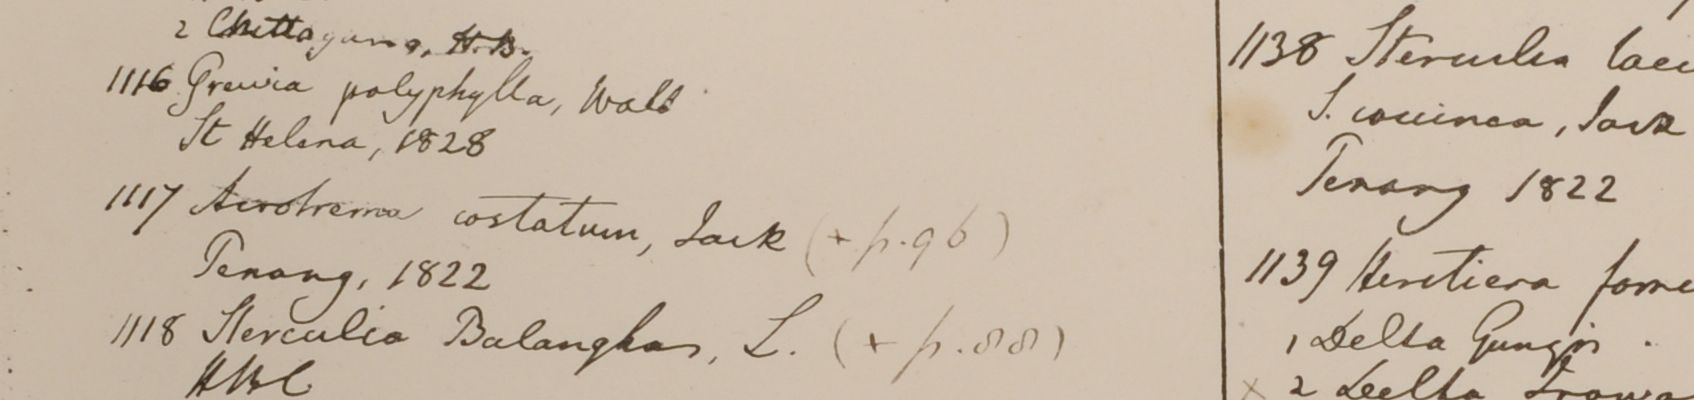 2 Chittagung, H.B.
1116 Grewia polyphylla, Wall
St Helena, 1828
1117 Acrotrema costatum, Jack (+ p.96)
Penang, 1822
1118 Sterculia Balanghas, L. (+ p.88)
HBC
1138 Sterculia laev
S. coccinea, Jack
Penang 1822
1139 Heretiera fome
1 Delta Gungis.
x 2 Delta Irawa